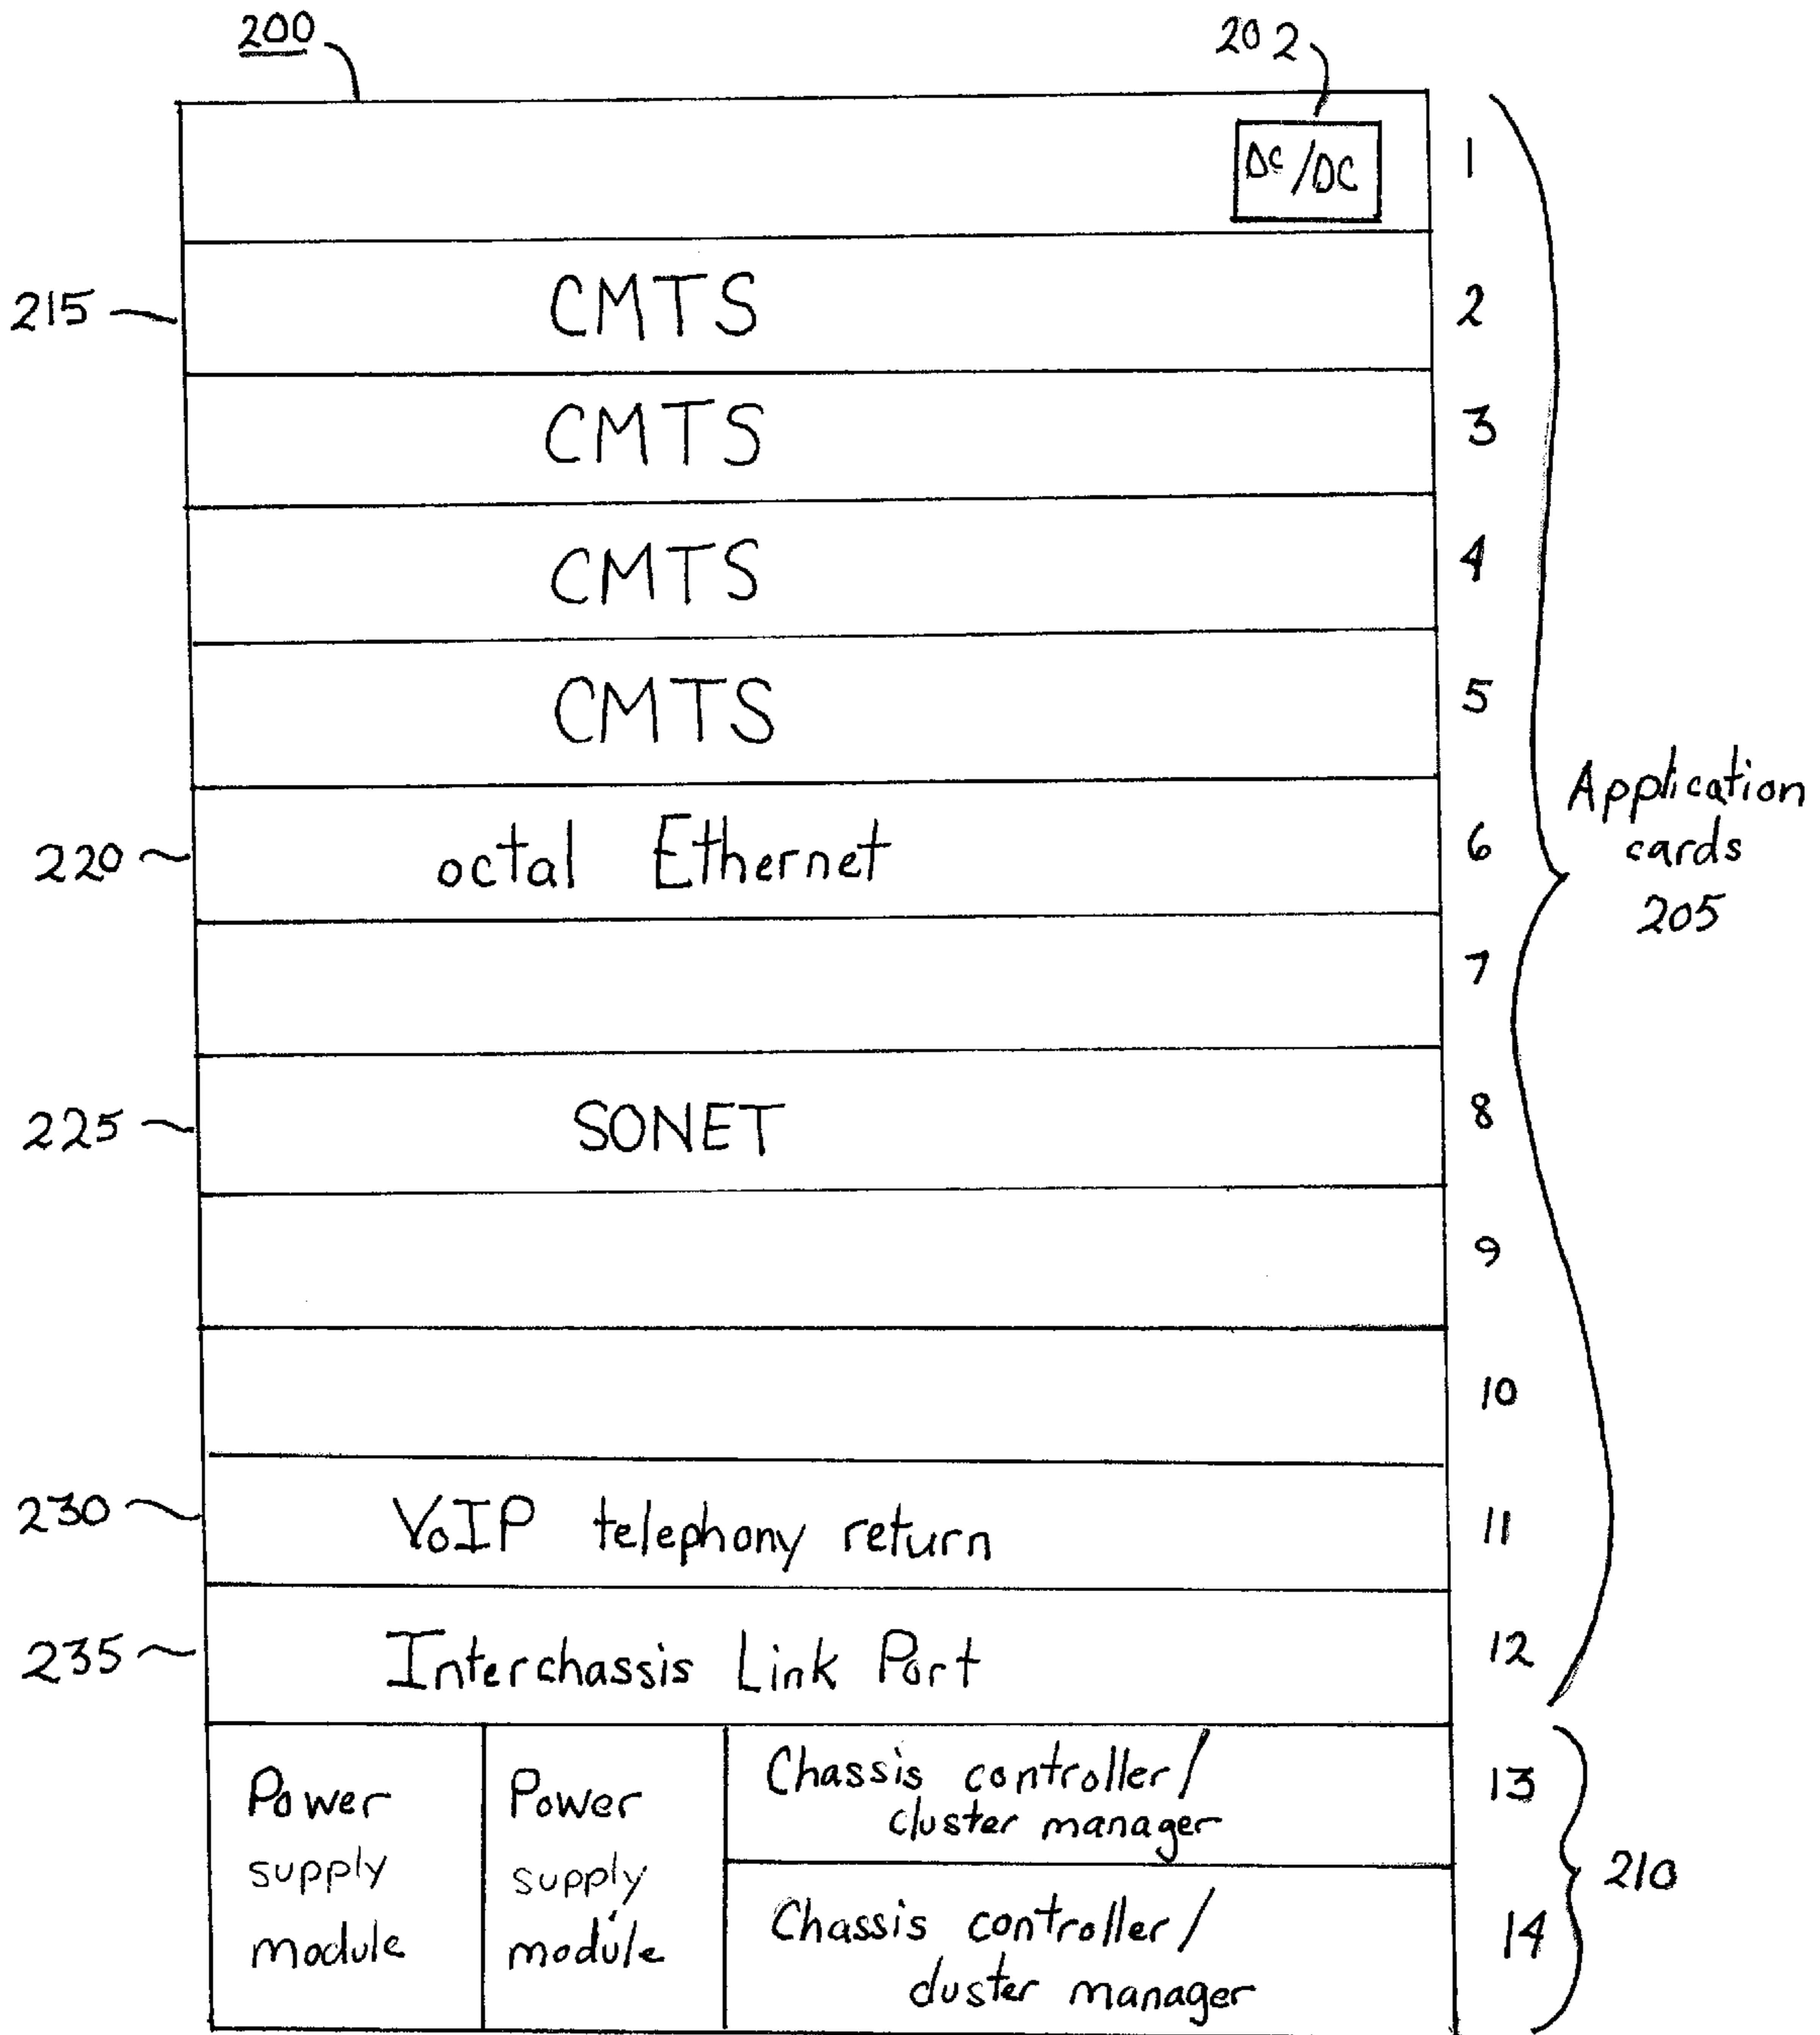 200
202
DC/DC
1
215
CMTS
2
CMTS
3
CMTS
4
CMTS
5
Application
cards
205
220
octal Ethernet
6
7
225
SONET
8
9
10
230
VoIP telephony return
11
235
Interchassis Link Port
12
Power
supply
module
Power
supply
module
Chassis controller/
cluster manager
13
Chassis controller/
cluster manager
14
210